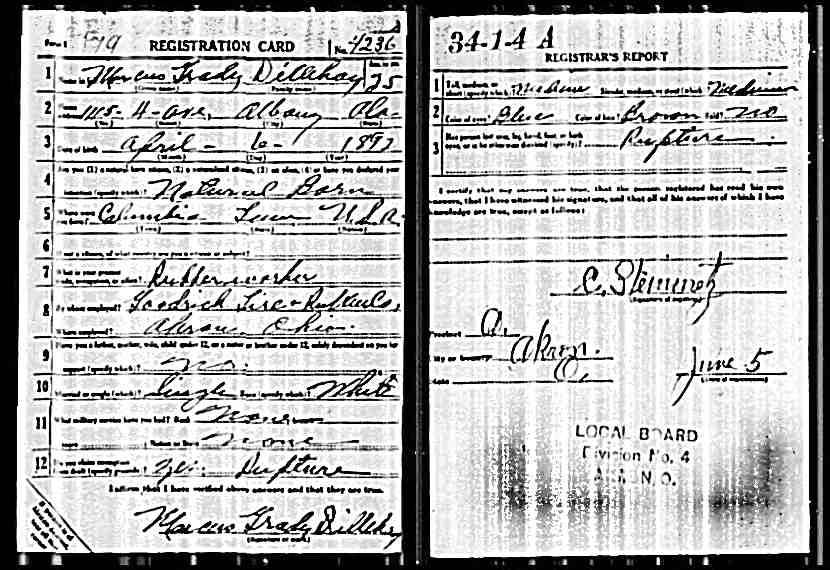 Form 1 179 REGISTRATION CARD No. 4236
1 Name in full Marcus Grady Dillehay Age, in yrs. 25
(Given name) (Family name)
2 Home address 1115 4-ave, Albany Ala-
(No.) (Street) (City) (State)
3 Date of birth April - 6- 1892
(Month) (Day) (Year)
4 Are you (1) a natural born citizen, (2) a naturalized citizen, (3) an alien, (4) or have you declared your
intention (specify which)? Natural Born
5 Where were you born? Columbia Tenn U.S.A.
(Town) (State) (Nation)
6 If not a citizen, of what country are you a citizen or subject?
7 What is your present trade, occupation, or office? Rubber worker
8 By whom employed? Goodrich Tire & Rubber Co.
Where employed? Akron, Ohio.
9 Have you a father, mother, wife, child under 12, or a sister or brother under 12, solely dependent on you for
support (specify which)? No.
10 Married or single (which)? Single Race (specify which)? White
11 What military service have you had? Rank None branch
years Nation or State None
12 Do you claim exemption from draft (specify grounds)? Yes. Rupture
I affirm that I have verified above answers and that they are true.
Marcus Grady Dillehay
(Signature or mark)
34-1-4 A
REGISTRAR'S REPORT
1 Tall, medium, or short (specify which)? Medium Slender, medium, or stout (which)? Medium
2 Color of eyes? Blue Color of hair? Brown Bald? No
3 Has person lost arm, leg, hand, foot, or both
eyes, or is he otherwise disabled (specify)? Rupture.
I certify that my answers are true, that the person registered has read his own
answers, that I have witnessed his signature, and that all of his answers of which I have
knowledge are true, except as follows:
C. Steinmetz
(Signature of registrar)
Precinct A.
City or County Akron.
State O. June 5
(Date of registration)
LOCAL BOARD
Division No. 4
AKRON, O.